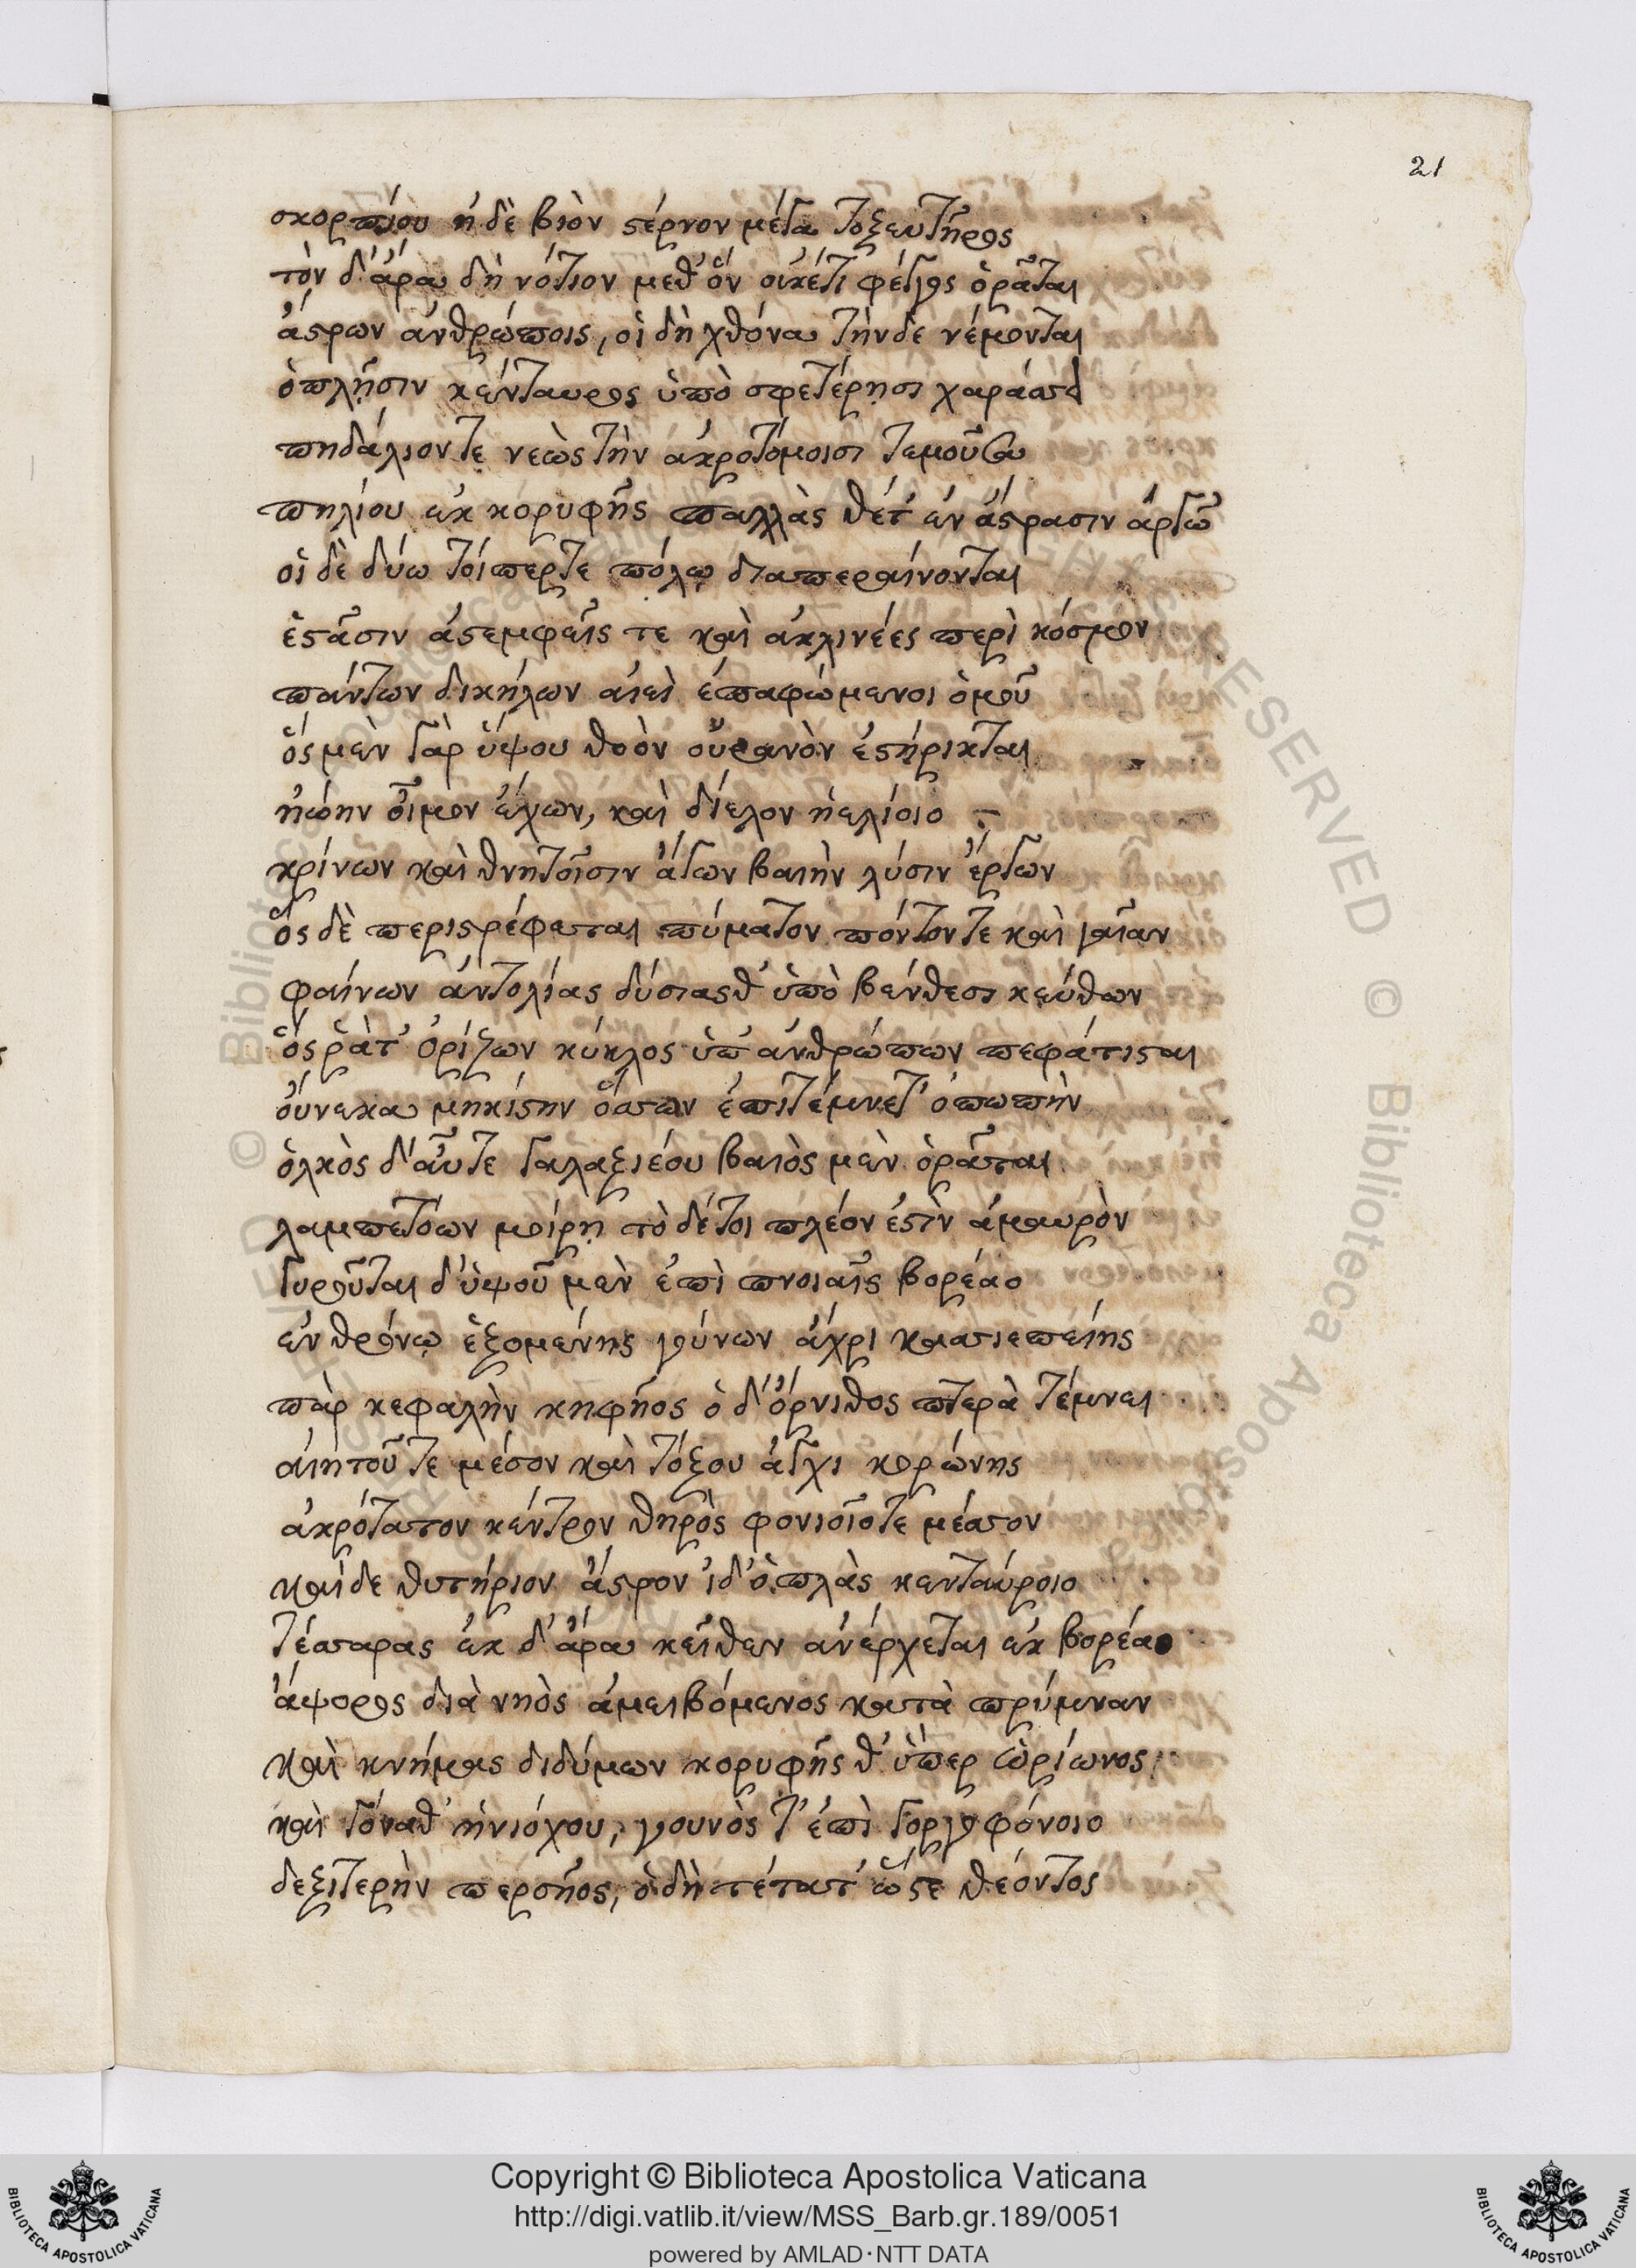 21
σκορπίου ἠδὲ βιὸν στέρνον μέγα τοξευτῆρος
τὸν δ' ἄρα δὴ νότιον μεθ' ὃν οὐκέτι φέγγος ὁρᾶται
ἄστρων ἀνθρώποις, οἳ δὴ χθόνα τήνδε νέμονται
ὁπλῇσιν κένταυρος ὑπὸ σφετέρῃσι χαράσσει
πηδάλιόν τε νεὼς τὴν ἀκροτόμοισι τεμοῦσα
πηλίου ἐκ κορυφῆς παλλὰς θέτ' ἐν ἄστρασιν ἀργῶ
οἱ δὲ δύω τοίπερτε πόλῳ διαπεραίνονται
ἑστᾶσιν ἀστεμφεῖς τε καὶ ἀκλινέες περὶ κόσμον
πάντων δικήλων αἰεὶ ἐπαφώμενοι ὁμοῦ
ὃς μὲν γὰρ ὕψου θοὸν οὐρανὸν ἐστήρικται
ἠώην οἶμον ἔχων, καὶ δίελον ἠελίοιο
κρίνων καὶ θνητοῖσιν ἄγων βαιὴν λύσιν ἔργων
ὃς δὲ περιστρέφεται πύματον πόντον τε καὶ γαῖαν
φαίνων ἀντολίας δύσιας θ' ὑπὸ βένθεσι κεύθων
ὅς ῥά τ' ὁρίζων κύκλος ὑπ' ἀνθρώπων πεφάτισται
οὕνεκα μηκίστην ὄσσων ἐπιτέμνετ' ὀπωπὴν
ὁλκὸς δ' αὖτε γαλαξιέου βαιὸς μὲν ὁρᾶται
λαμπετόων μοίρῃ τὸ δέτοι πλέον ἐστὶν ἀμαυρὸν
γυροῦται δ' ὑψοῦ μὲν ἐπὶ πνοιαῖς βορέαο
ἐν θρόνῳ ἑζομένης γούνων ἄχρι κασσιεπείης
πὰρ κεφαλὴν κηφῆος ὁ δ' ὄρνιθος πτερὰ τέμνει
αἰητοῦ τε μέσον καὶ τόξου ἄγχι κορώνης
ἀκρότατον κέντρον θηρὸς φονιοῖό τε μέσσον
καὶ δε θυτήριον ἄστρον ἰδ' ὁπλὰς κενταύροιο
τέσσαρας ἐκ δ' ἄρα κεῖθεν ἀνέρχεται ἐκ βορέαο
ἄψορος διὰ νηὸς ἀμειβόμενος κατὰ πρύμναν
καὶ κνήμας διδύμων κορυφῆς θ' ὑπερ ὠρίωνος
καὶ γόναθ' ἡνιόχου, γουνὸς τ' ἐπὶ γοργοφόνοιο
δεξιτερὴν περσῆος, ὁ δὴ τέτατ' ὥστε θέοντος
Copyright © Biblioteca Apostolica Vaticana
http://digi.vatlib.it/view/MSS_Barb.gr.189/0051
powered by AMLAD·NTT DATA